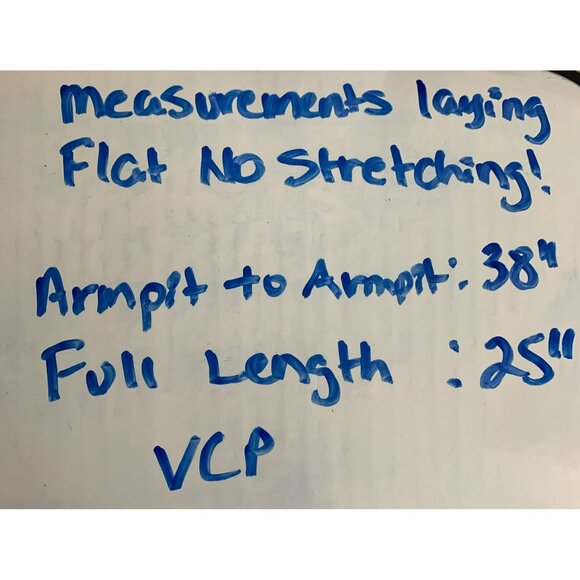 Measurements laying
Flat No Stretching!
Armpit to Armpit: 38"
Full Length : 25"
VCP